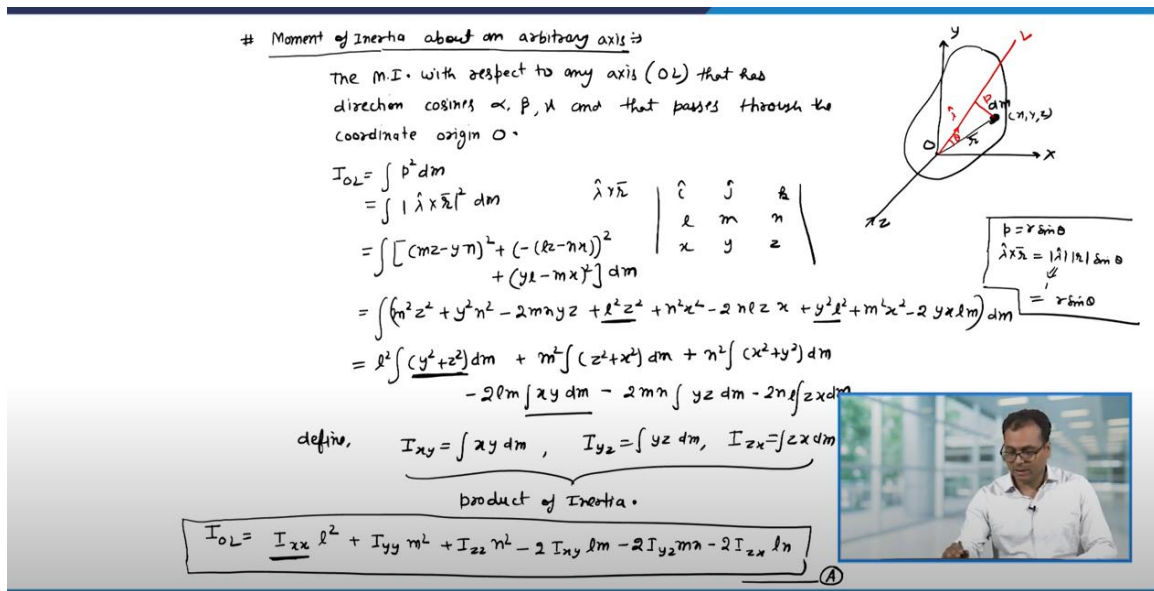 # Moment of Inertia about an arbitrary axis :-
The M.I. with respect to any axis (OL) that has
direction cosines α, β, γ and that passes through the
coordinate origin O.
I_OL = ∫ p² dm
= ∫ |λ̂ × r̄|² dm
λ̂ × r̄ | î ĵ k̂ |
| l m n |
| x y z |
= ∫ [(mz - yn)² + (-(lz - nx))²
+ (yl - mx)²] dm
= ∫ (m²z² + y²n² - 2mnyz + l²z² + n²x² - 2nlzx + y²l² + m²x² - 2yxlm) dm
= l² ∫ (y² + z²) dm + m² ∫ (z² + x²) dm + n² ∫ (x² + y²) dm
- 2lm ∫ xy dm - 2mn ∫ yz dm - 2nl ∫ zx dm
define, I_xy = ∫ xy dm , I_yz = ∫ yz dm, I_zx = ∫ zx dm
product of Inertia.
I_OL = I_xx l² + I_yy m² + I_zz n² - 2 I_xy lm - 2 I_yz mn - 2 I_zx ln
A
y
L
p
dm
(x, y, z)
λ̂
θ
r̄
O
x
z
p = r sin θ
λ̂ × r̄ = |λ̂| |r| sin θ
1
= r sin θ